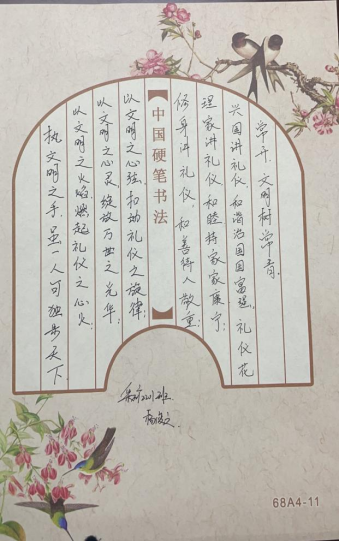 执文明之手，虽一人可独步天下
以文明之火焰，燃起礼仪之心火
以文明之心灵，绽放万世之光华；
以文明之心弦，扣动礼仪之旋律；
中国硬笔书法
修身讲礼仪，和善待人人敬重；
理家讲礼仪，和睦持家家康宁；
兴国讲礼仪，和谐治国国富强。礼仪花
常开，文明树常青。
2201班
68A4-11